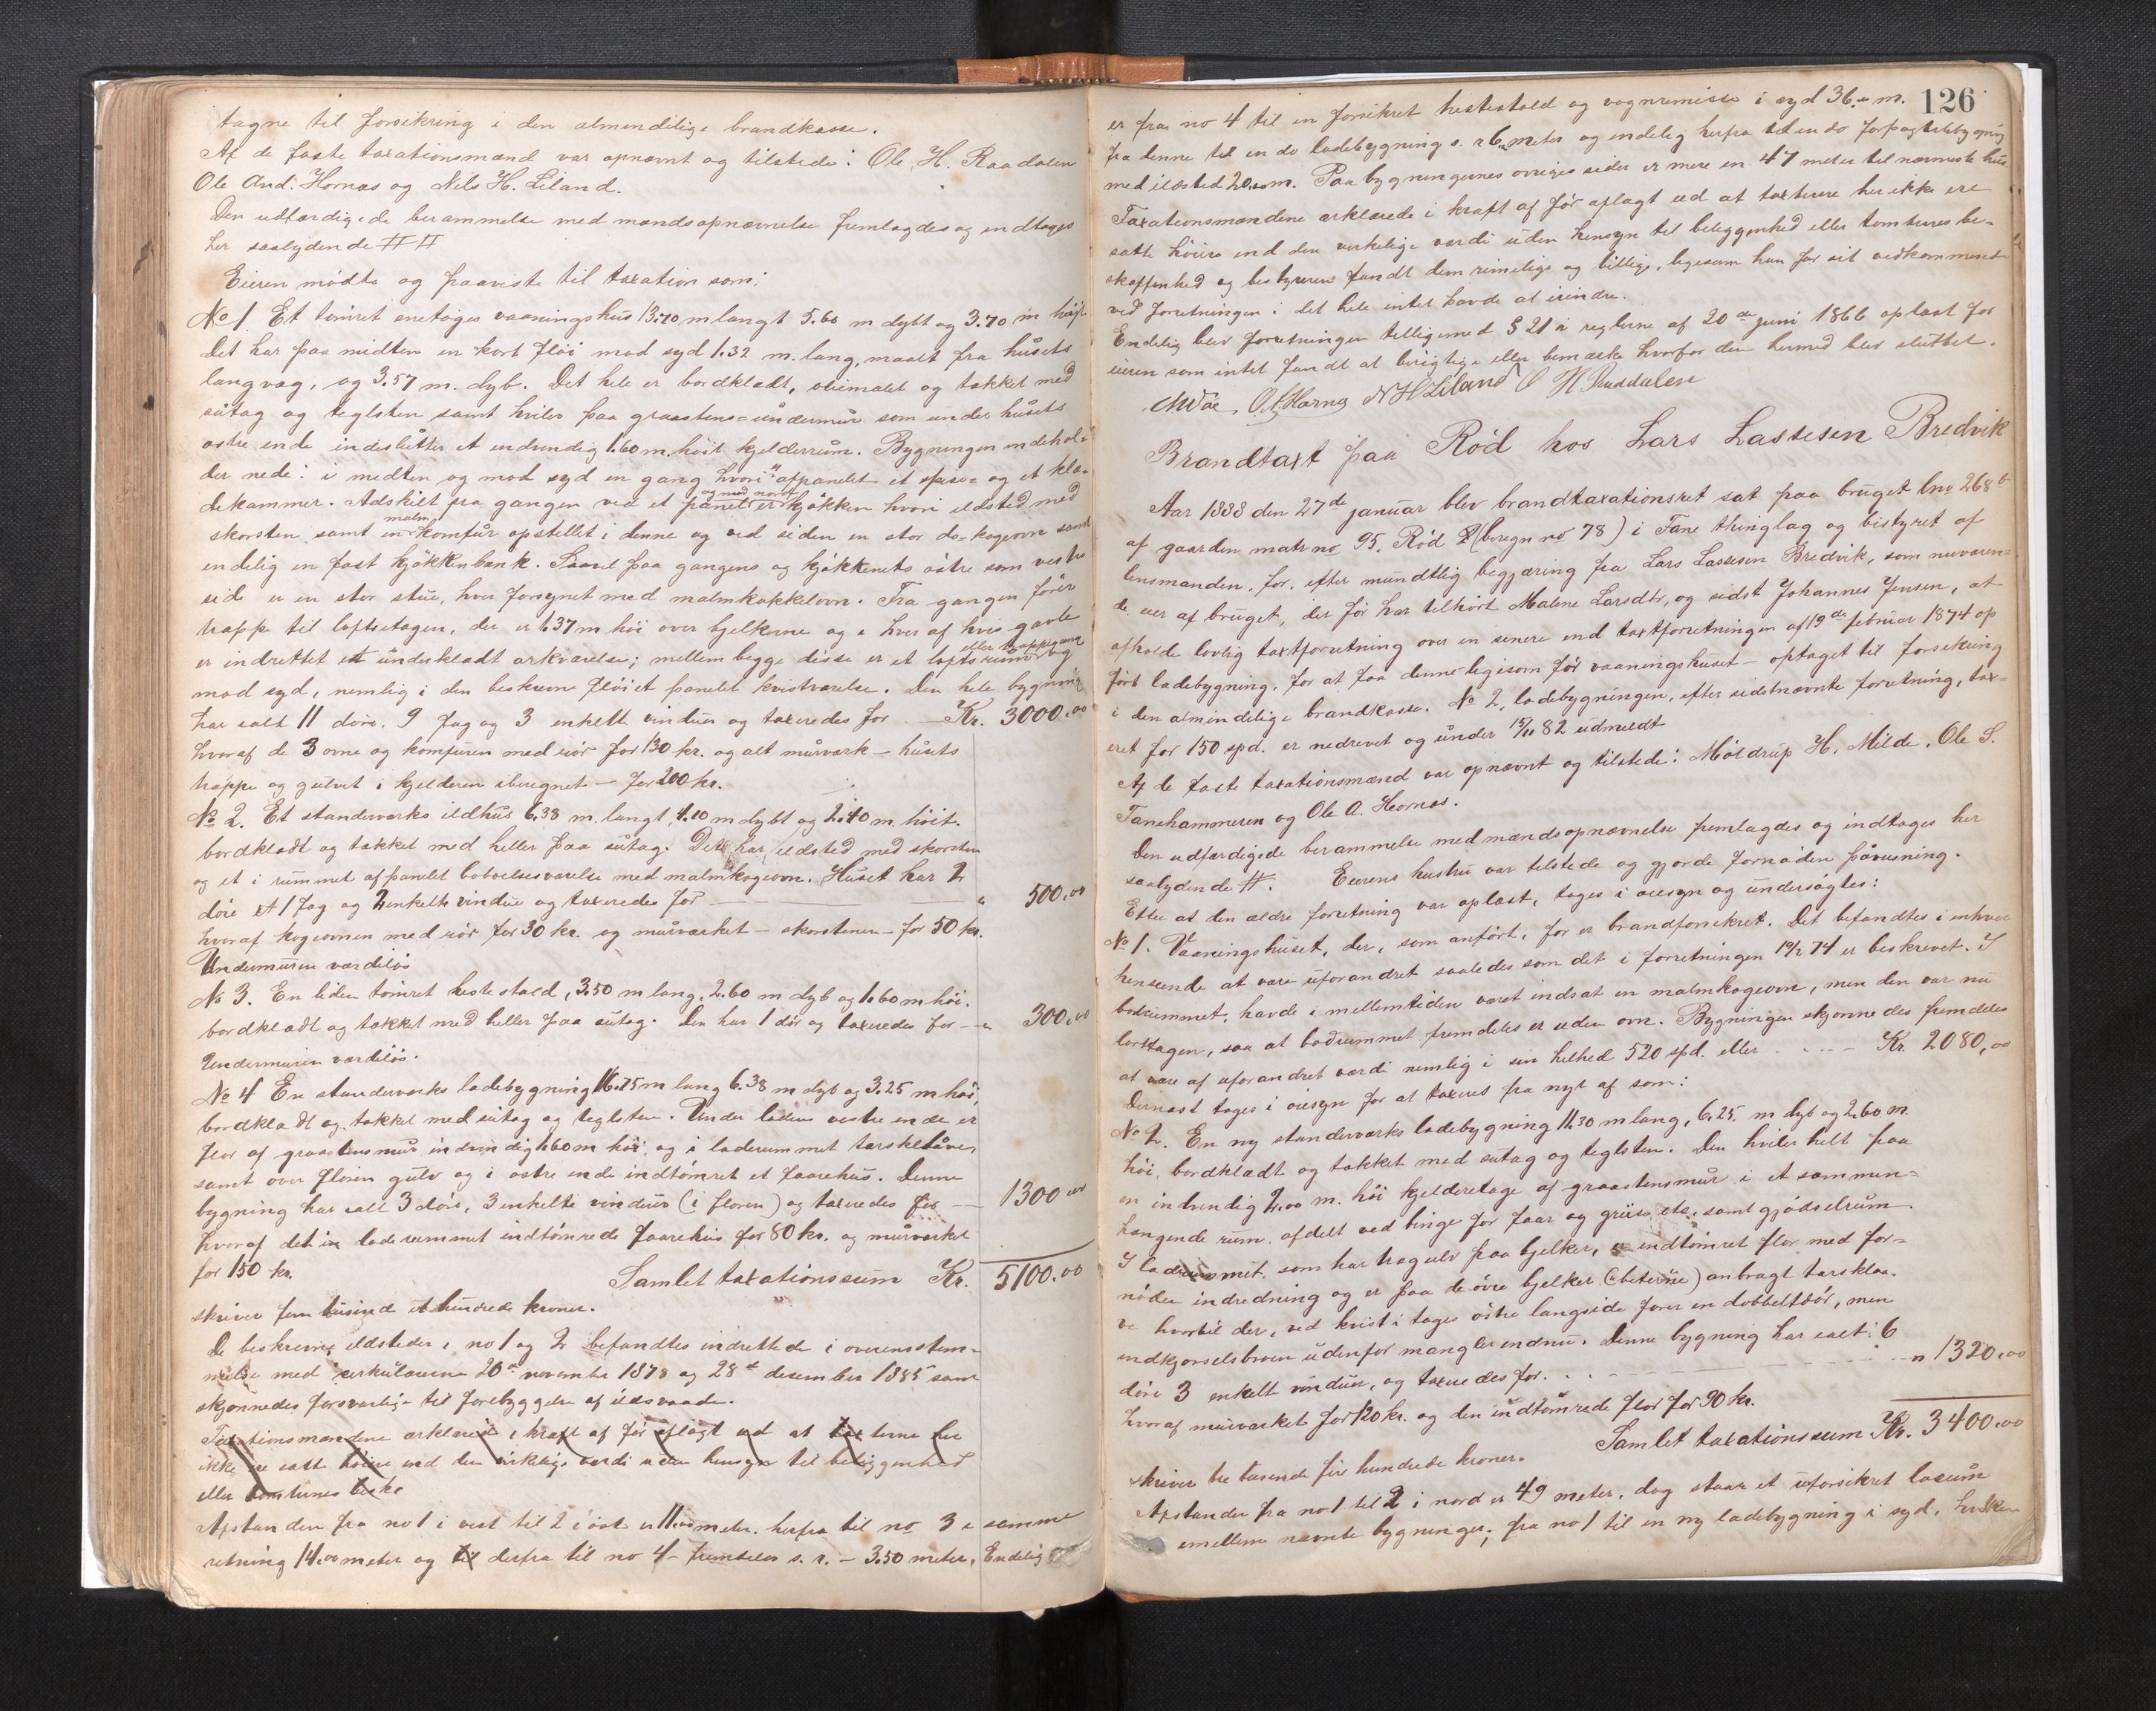 tagne til forsikring i den almindelige brandkasse.
Af de faste taxationsmænd var opnævnt og tilstede: Ole H. Raadalen
Ole And. Hornæs og Nils H. Liland.
Den udfærdigede berammelse med mandsopnævnelse fremlagdes og indtages
her saalydende ## 
Eieren mødte og paaviste til taxation som:
No 1. Et tømret enetages vaaningshus 13.70 m langt 5.60 m dybt og 3.70 m høit
Det har paa midten en kort fløi mod syd 1.32 m. lang, maalt fra husets
langvæg, og 3.57 m. dyb. Det hele er bordklædt, oliemalet og takket med
sutag og teglsten samt hviler paa graastens-undermur som under husets
østre ende indeslutter et indvendig 1.60 m. høit kjelderrum. Bygningen indehol-
der nede: i midten og mod syd en gang hvori afpanelet et spise- og et klæ-
dekammer. Adskilt fra gangen ved et panel er og mod nord kjøkken hvori ildsted med
skorsten samt en malm komfur opstillet i denne og ved siden en stor do-kogeovn samt
endelig en fast kjøkkenbænk. Saavel paa gangens og kjøkkenets østre som vestre
side er en stor stue, hver forsynet med malmkakkelovn. Fra gangen fører
trappe til loftsetagen, der er 1.37 m høi over bjelkerne og i hver af hvis gavle
er indrettet et underklædt arkværelse; mellem begge disse er et loftsrum eller trappegang og
mod syd, nemlig i den beskrevne fløi et panelet kvistværelse. Den hele bygning
har ialt 11 døre. 9 fag og 3 enkelte vinduer og taxeredes for — Kr. 3000.00
hvoraf de 3 ovne og komfuren med rør for 130 kr. og alt murværk – husets
trappe og gulvet i kjelderen iberegnet – for 200 kr.
No 2. Et standerværks ildhus 6.38 m. langt, 4.10 m dybt og 2.40 m. høit.
bordklædt og takket med heller paa sutag. Det har ildsted med skorsten
og et i rummet afpanelet beboelsesværelse med malmkogeovn. Huset har 2
døre et 1 fag og 2 enkelte vindue og taxeredes for — " 500.00
hvoraf kogeovnen med rør for 30 kr. og murværket – skorstenen – for 50 kr.
Undermuren værdiløs
No 3. En liden tømret hestestald, 3.50 m lang, 2.60 m dyb og 1.60 m høi.
bordklædt og takket med heller paa sutag. Den har 1 dør og taxeredes for — " 300.00
Undermuren værdiløs.
No 4 En standerværks ladebygning 16.75 m lang 6.38 m dyb og 3.25 m høi,
bordklædt og takket med sutag og teglsten. Under ladens vestre ende er
flor af graastensmur indvendig 1.60 m høi, og i laderummet tærskelåve,
samt over floren gulv og i østre ende indtømret et faarehus. Denne
bygning har ialt 3 døre, 3 enkelte vinduer (i floren) og taxeredes for — 1300.00
hvoraf det in laderummet indtømrede faarehus for 80 kr. og murværket
for 150 kr.
Samlet taxationssum Kr. 5100.00
skriver fem tusind et hundrede kroner.
De beskrevne ildsteder i no 1 og 2 befandtes indrettede i overensstem-
melse med cirkulærerne 20de november 1878 og 28de desember 1885 samt
skjønnedes forsvarlige til forebyggelse af ildsvaade.
Taxationsmændene erklærede i kraft af før aflagt ed at taxterne her
ikke ere satte høiere end den virkelige værdi uden hensyn til beliggenhed
eller tomternes beska
Afstanden fra no 1 i vest til 2 i øst er 11.00 meter. herfra til no 3 i samme
retning 14.00 meter og til derfra til no 4 – fremdeles s. r. – 3.50 meter. Endelig
126
er fra no 4 til en forsikret hestestald og vognremisse i syd 36.00 m.
fra denne til en do ladebygning s. r 6.00 meter og endelig herfra til en do forpagterbygning
med ildsted 20.00 m. Paa bygningernes øvrige sider er mere en 47 meter til nærmeste hus.
Taxationsmændene erklærede i kraft af før aflagt ed at taxterne her ikke ere
satte høiere end den verkelige værdi uden hensyn til beliggenhed eller tomternes be-
skaffenhed og bestyreren fandt dem rimelige og billige, ligesom han for sit vedkommende
ved forretningen i det hele intet havde at erindre.
Endelig blev forretningen tilligemed § 21 i reglerne af 20de juni 1866 oplæst for
eieren som intet fandt at berigtige eller bemærke hvorfor den hermed blev sluttet.
O A Hornes N H Liland O H Raadalen
Brandtaxt paa Rød hos Lars Lassesen Bredvik
Aar 1888 den 27de januar blev brandtaxationsret sat paa bruget lno 268 b
af gaarden matr no 95. Rød 2 (beregn no 78) i Fane thinglag og bistyret af
lensmanden, for, efter mundtlig begjæring fra Lars Lassesen Bredvik, som nuværen-
de eier af bruget, der før har tilhørt Malene Larsdtr, og sidst Johannes Jensen, at
afholde lovlig taxtforretning over en senere end taxtforretningen af 19de februar 1874 op
ført ladebygning, for at faa denne ligesom før vaaningshuset – optaget til forsikring
i den almindelige brandkasse. No 2, ladebygningen, efter sidstnævnte forretning, tax-
eret for 150 spd. er nedrevet og under 15/11 82 udmeldt
Af de faste taxationsmænd var opnævnt og tilstede: Møldrup H. Milde, Ole S.
Fanehammeren og Ole A. Hornæs.
Den udfærdigede berammelse med mændsopnævnelse fremlagdes og indtages her
saalydende #. Eierens hustru var tilstede og gjorde fornøden påvisning.
Efter at den ældre forretning var oplæst, toges i øiesyn og undersøgtes:
No 1. Vaaningshuset, der, som anført, før er brandforsikret. Det befandtes i enhver
henseende at være uforandret saaledes som det i forretningen 19/2 74 er beskrevet. I
bodrummet, havde i mellemtiden været indsat en malmkogeovn, men den var nu
borttagen, saa at bodrummet fremdeles er uden ovn. Bygningen skjønnedes fremdeles
at være af uforandret værdi nemlig i sin helhed 520 spd. eller . . — — Kr. 2080,00
Dernæst toges i øiesyn for at taxeres fra nyt af som:
No 2. En ny standerværks ladebygning 11.30 m lang, 6.25. m dyb og 2.60 m.
høi, bordklædt og takket med sutag og teglsten. Den hviler helt paa
en indvendig 2.00 m. høi kjelderetage af graastensmur i et sammen-
hængende rum, afdelt ved binge for faar og grise, etc. samt gjødselrum.
I laderummet, som har tragulv paa bjelker, er indtømret flor med for-
nøden indredning og er paa de øvre bjelker (beterne) anbragt tærsklaa-
ve hvortil der, ved kvist i tagets østre langside fører en dobbeltdør, men
indkjørselsbroen udenfor mangler endnu. Denne bygning har ialt: 6
døre 3 enkelt vinduer, og taxeredes for. . . — — — " 1320.00
hvoraf murværket for 120 kr. og den indtømrede flor for 90 kr.
Samlet taxationssum Kr. 3400.00
skriver tre tusende fire hundrede kroner.
Afstanden fra no 1 til 2 i nord er 49 meter, dog staar et uforsikret
emellem nævnte bygninger; fra no 1 til en ny ladebygning i syd, hvilken